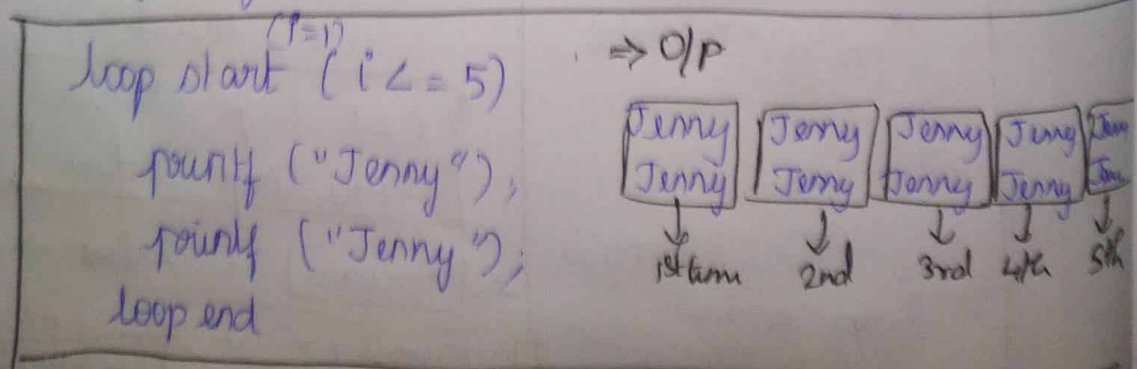 (i=1)
loop start (i <= 5)
printf ("Jenny");
printf ("Jenny");
loop end
⇒ O/P
Jenny Jenny Jenny Jenny Jenny
Jenny Jenny Jenny Jenny Jenny
1st turn 2nd 3rd 4th 5th